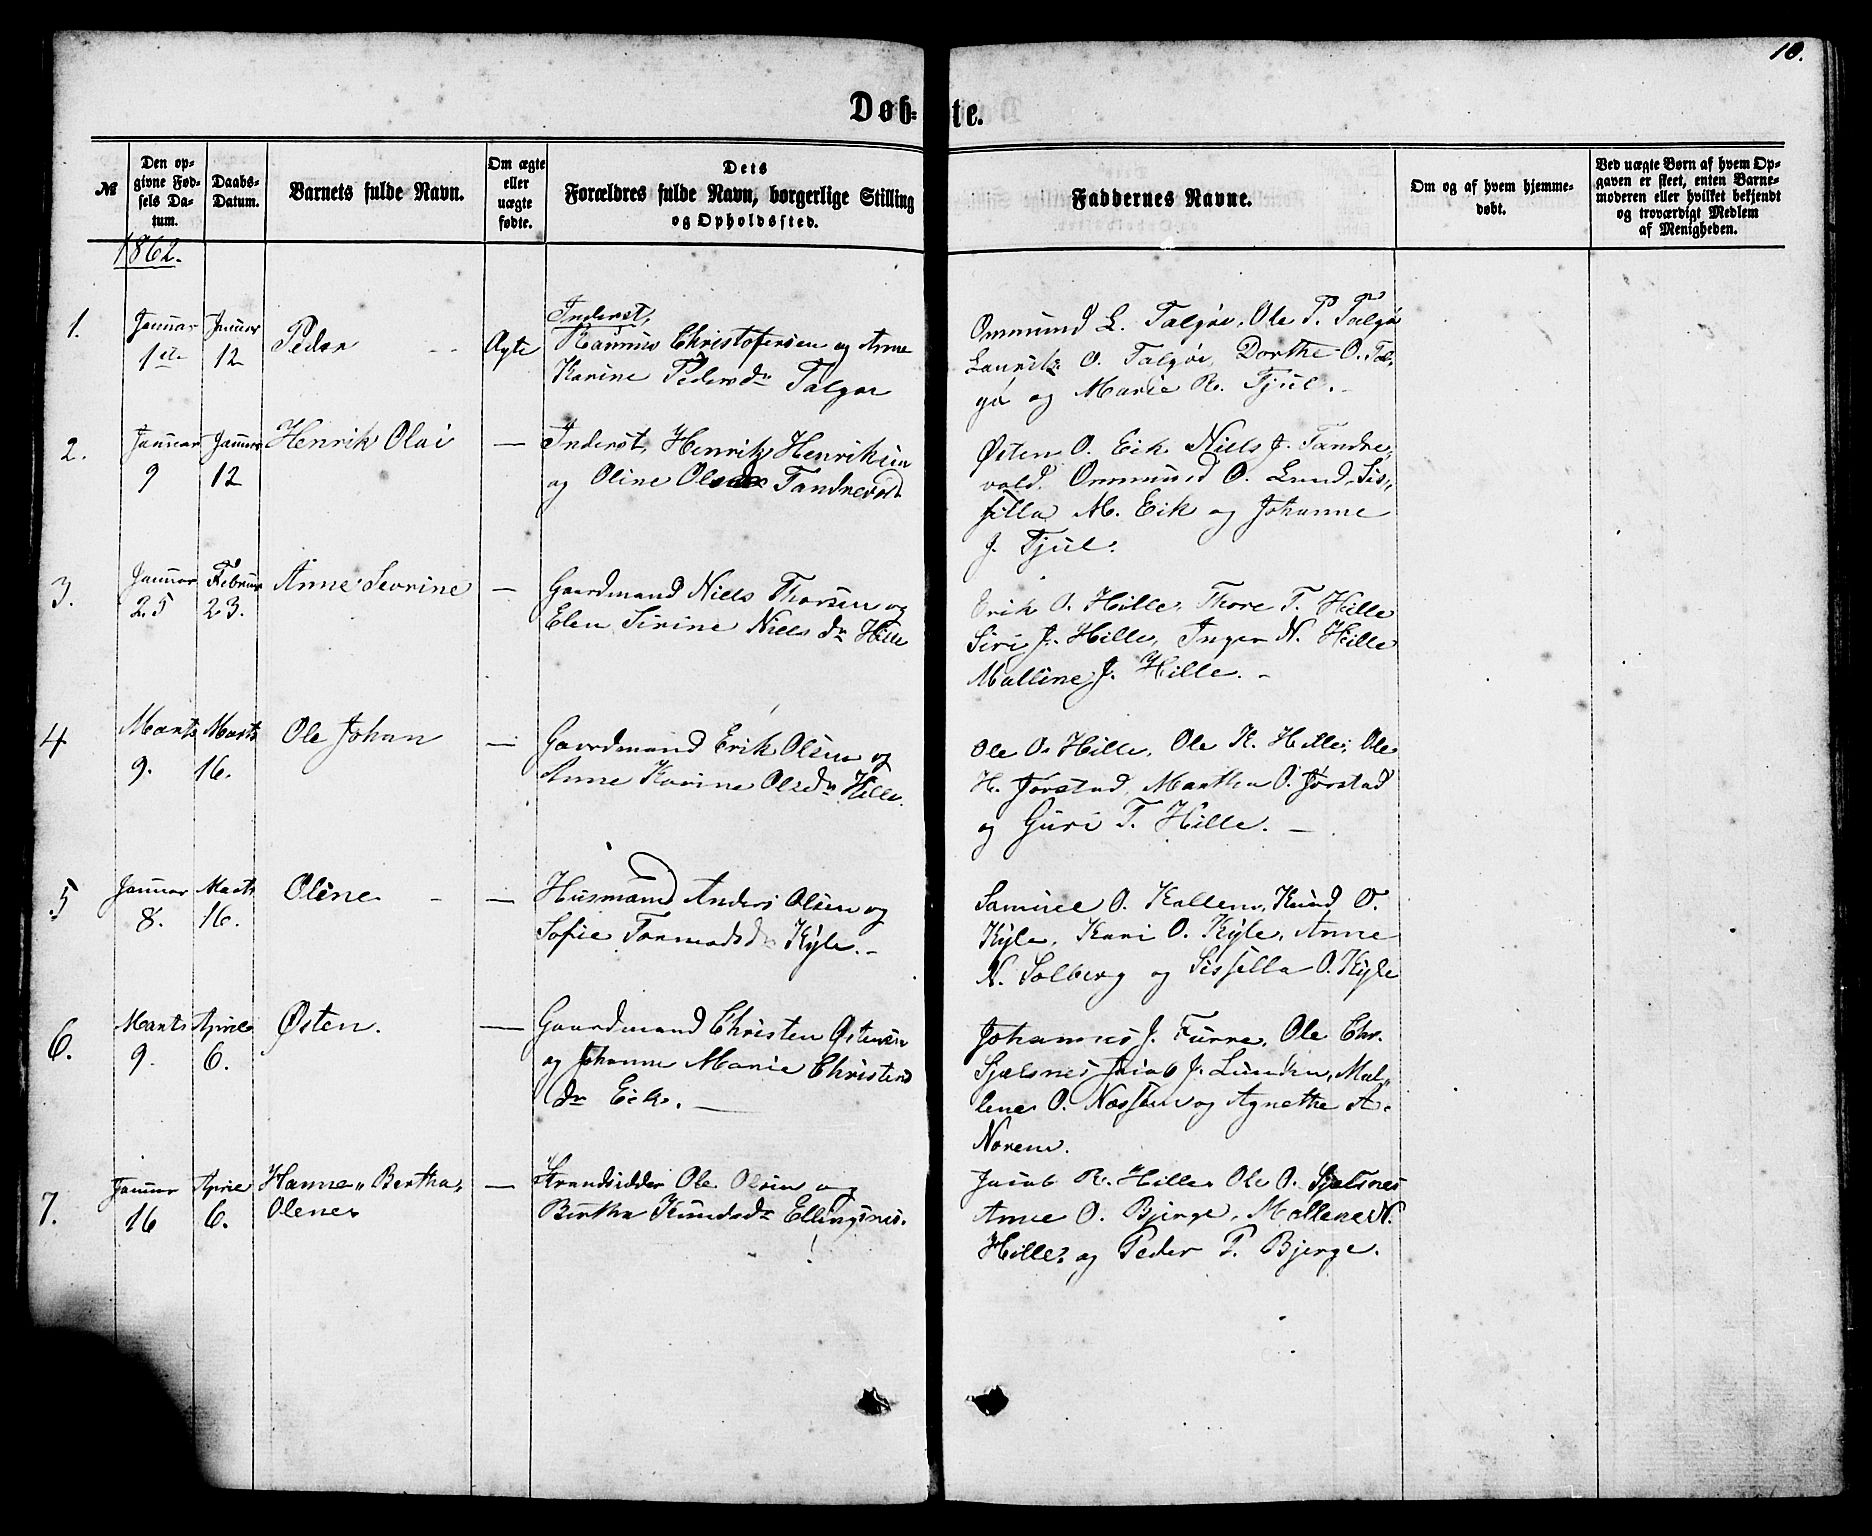 10.
Døb-te.
№
Den op-
givne Fød-
sels Da-
tum.
Daabs-
Datum.
Barnets fulde Navn.
Om ægte
eller
uægte
fødte.
Dets
Forældres fulde Navn, borgerlige Stilling
og Opholdssted.
Faddernes Navne.
Om og af hvem hjemme-
døbt.
Ved uægte Børn af hvem Op-
gaven er skeet, enten Barne-
moderen eller hvilket bekjendt
og troværdigt Medlem
af Menigheden.
1862.
1.
Januar
1ste
Januar
12
Peder
Ægte
Inderst,
Rasmus Christofersen og Anne
Karine Pedersdr Talgøe
Ommund L. Talgøe, Ole P. Talgø
Lauritz O. Talgøe, Dorthe O. Tal-
gø og Marie R. Tjul.
2.
Januar
9
Januar
12
Henrik Olai
—
Inderst, Henrik Henriksen
og Oline Olsdr Tandrevold
Østen O. Eik Niels J. Tandre-
vold. Ommund O. Lund, Sis-
silla M. Eik og Johanne
J. Tjul.
3.
Januar
25
Februar
23.
Anne Sevrine
—
Gaardmand Niels Thorsen og
Elen Sirine Nielsdr Hille
Erik O. Hille, Thore T. Hille
Siri J. Hille, Inger N. Hille
Malline J. Hille. -
4
Marts
9.
Marts
16.
Ole Johan
—
Gaardmand Erik Olsen og
Anne Karine Olsdr Hille.
Ole O. Hille, Ole K. Hille, Ole
H. Jørstad, Martha O. Jørstad
og Guri T. Hille. —
5
Januar
8.
Marts
16.
Oline
—
Husmand Anders Olsen og
Sofie Tormodsdr Kÿle. -
Samuel O. Kallem, Knud O.
Kÿle, Kari O. Kÿle, Anne
N. Solberg og Sissella O. Kÿle
6.
Marts
9.
April
6.
Østen.
—
Gaardmand Christen Østensen
og Johanne Marie Christens
dr Eik. —
Johannes J. Furre, Ole Chr.
Sjælsnes Jacob J. Lunden, Mal-
lene O. og Agnethe A.
Norem.
7.
Januar
16
April
6.
Hanne Bertha
Olene
—
Strandsidder Ole Olsen og
Bertha Knudsdr Ellingsnes.
Jacob R. Hille Ole O. Sjælsnes
Anne O. Bjerge, Mallene N.
Hille og Peder P. Bjerge.